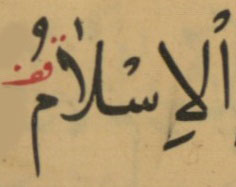 اْلاِسْلَامُ قف